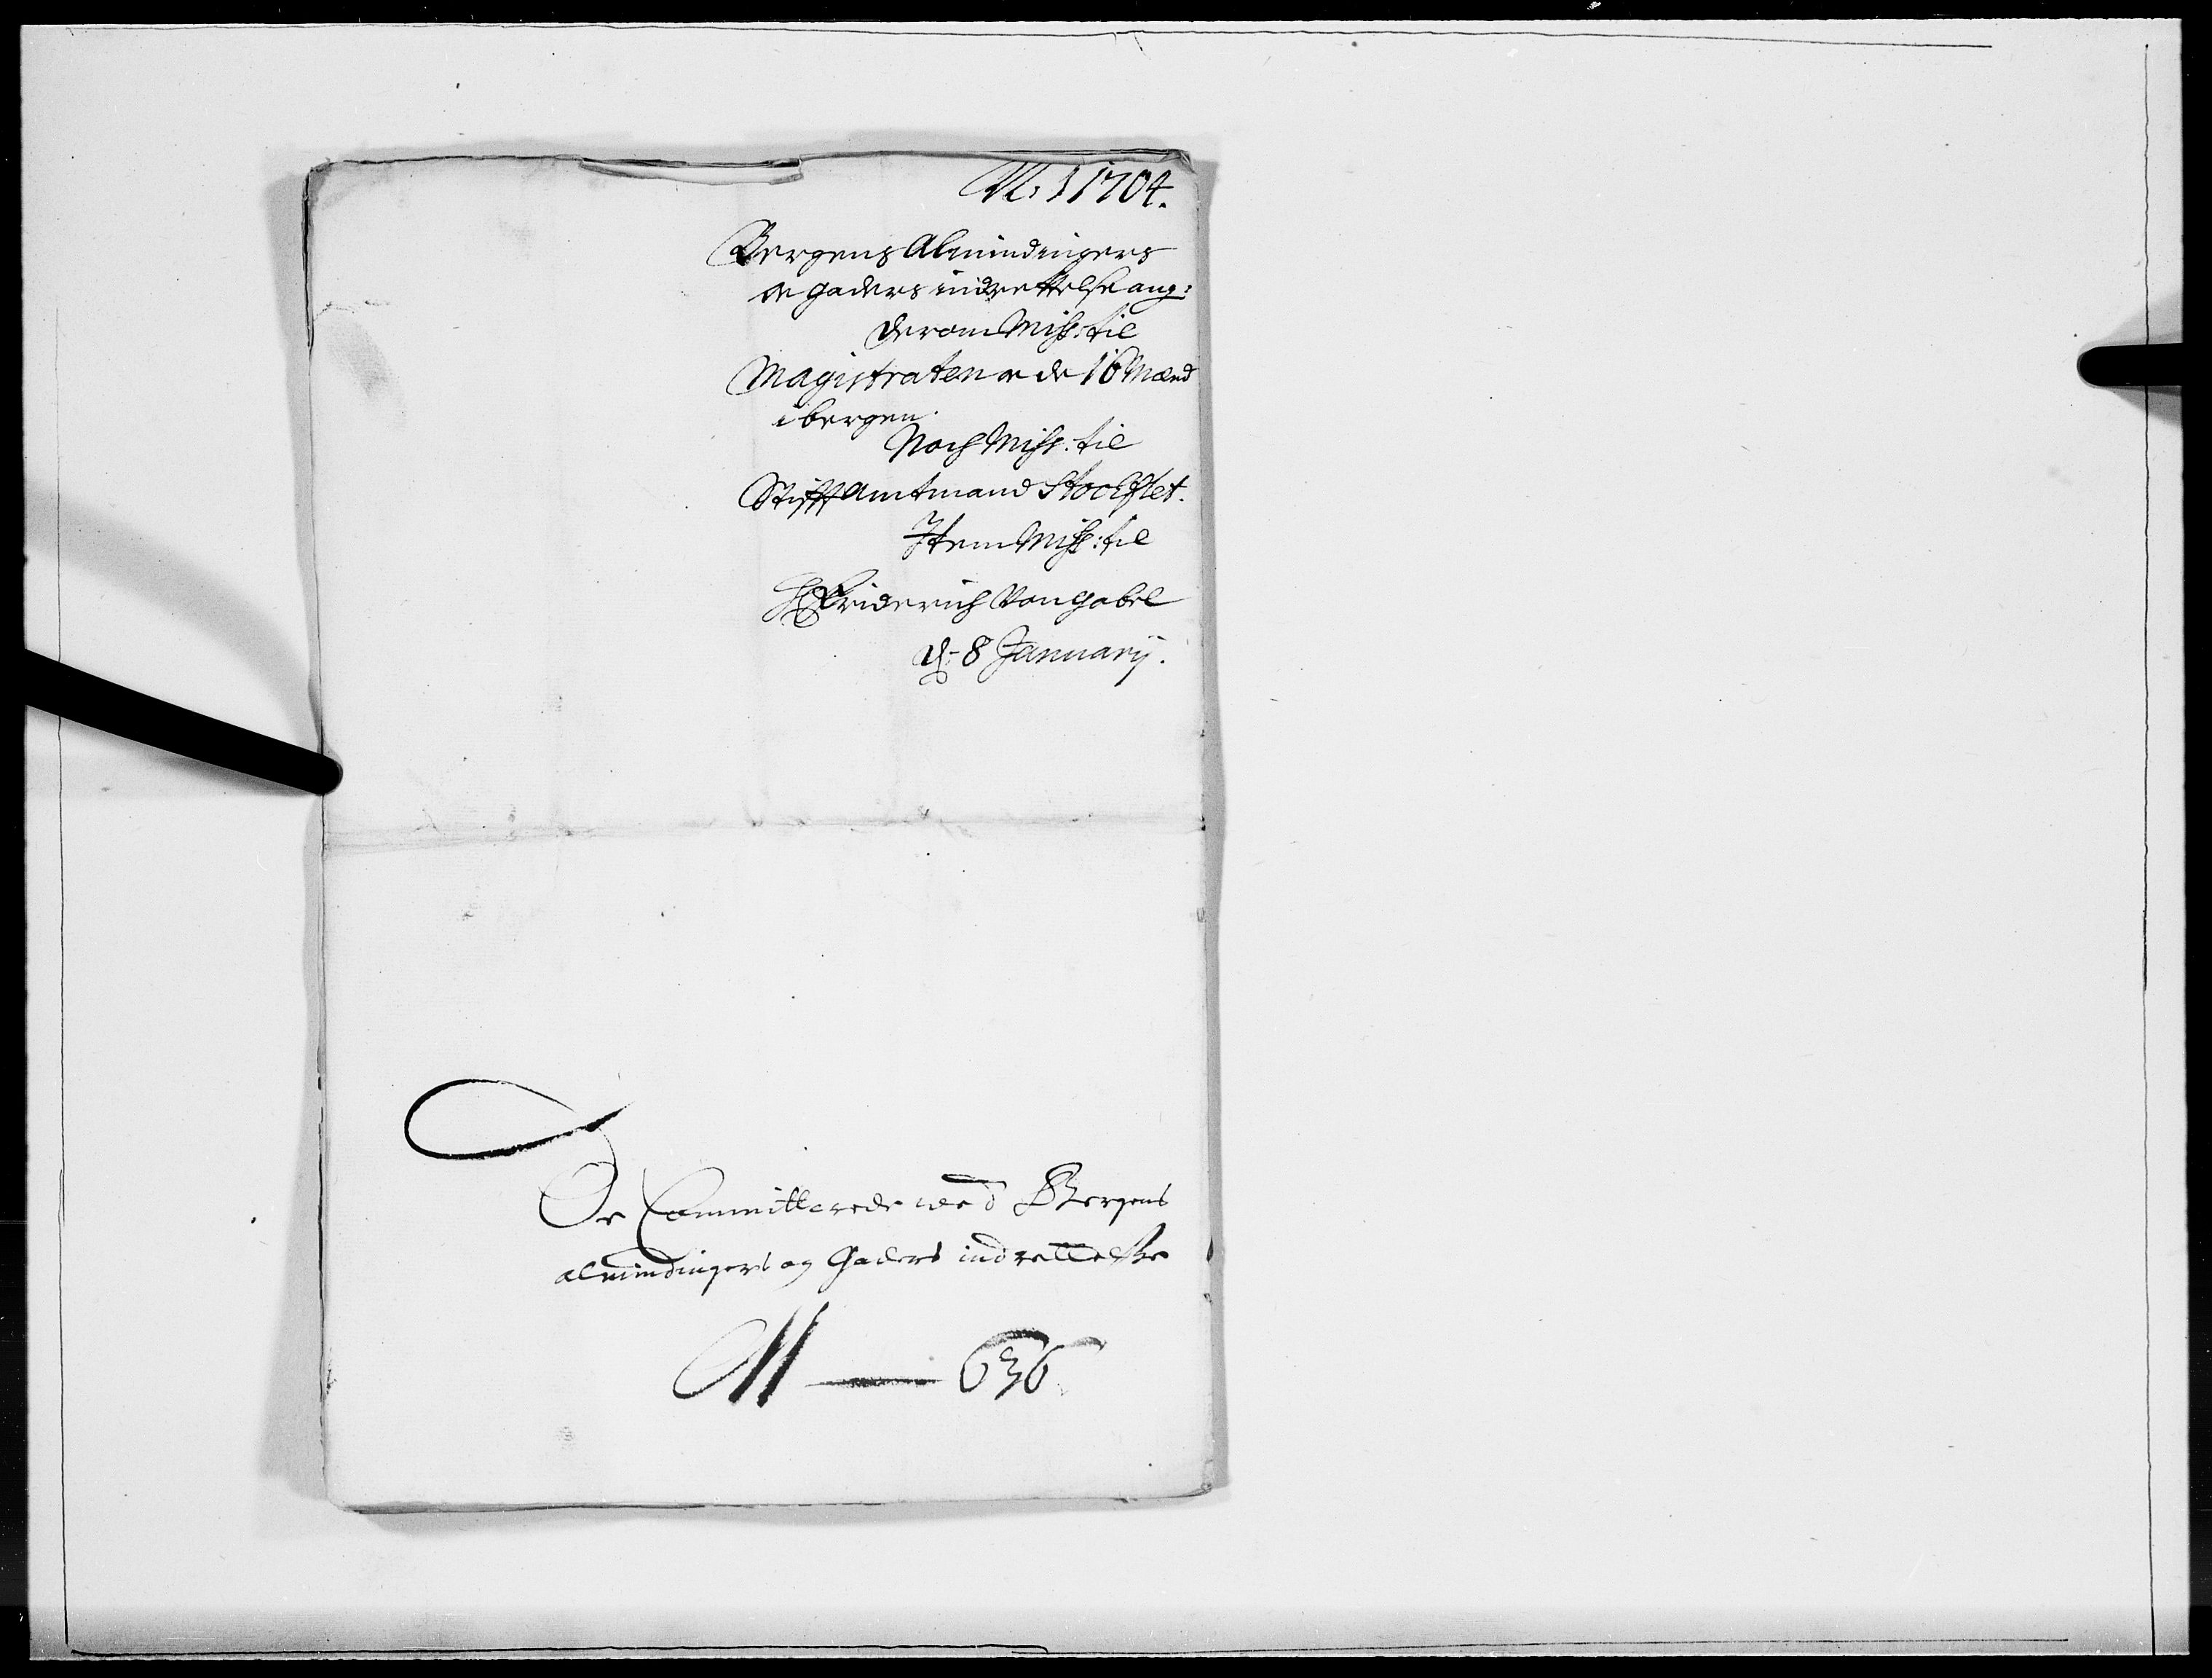 N. 1 1704.
Bergens Almindingers
oc gaders indrettelse ang:
derom Miss: til
Magistraten oc de 16 Mænd
i bergen.
Noch Miss. til
Stifftamtmand Stockflet.
Item Miss: til
H Friderich Von Gabel
d: 8 Januarij.
De Committerede wed Bergens
almindingers og Gaders indrettelse
N — 636